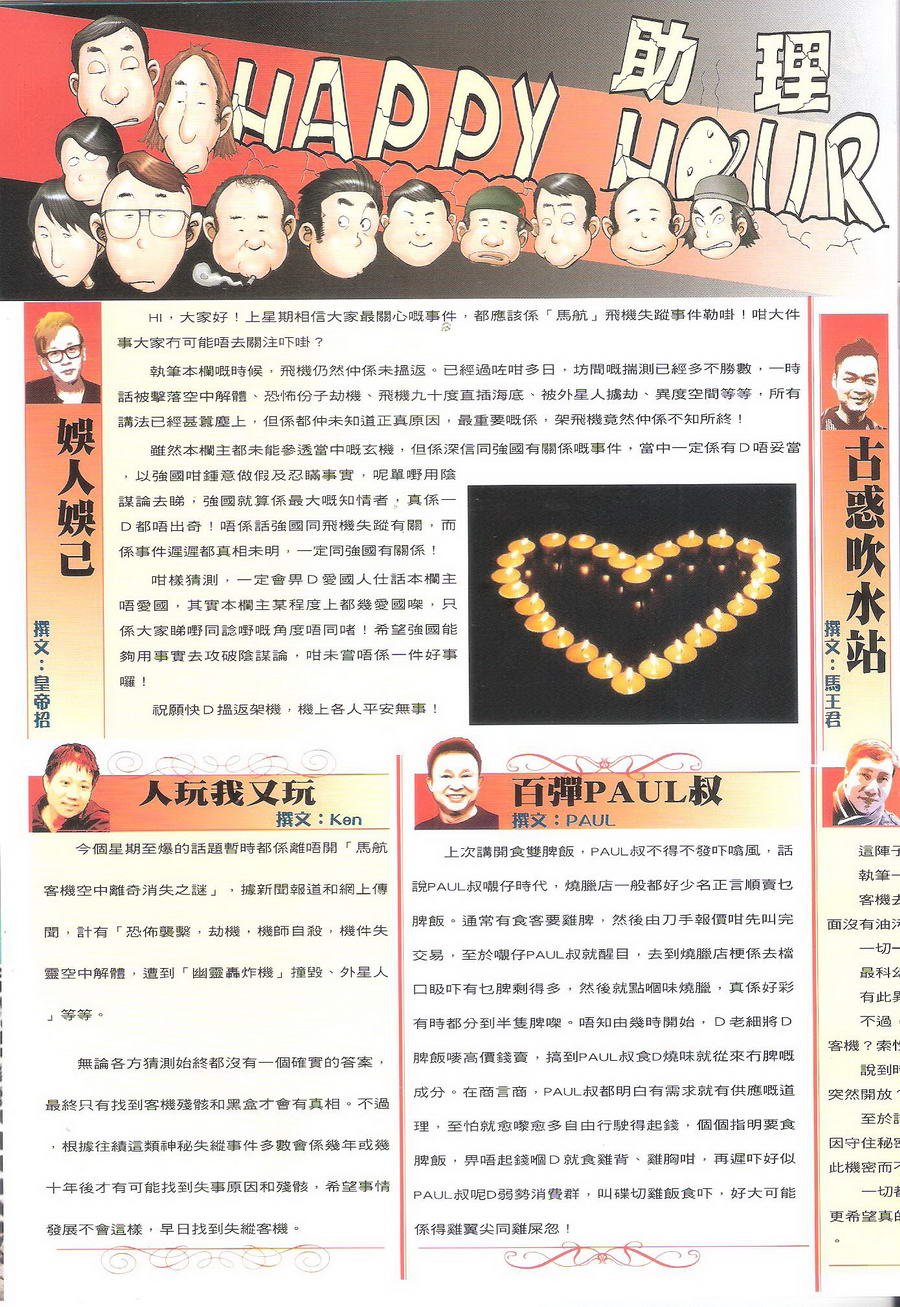 助理
HAPPY HOUR
娛人娛己
撰文：皇帝招
HI，大家好！上星期相信大家最關心嘅事件，都應該係「馬航」飛機失蹤事件勒啩！咁大件
事大家冇可能唔去關注吓啩？
執筆本欄嘅時候，飛機仍然仲係未搵返。已經過咗咁多日，坊間嘅揣測已經多不勝數，一時
話被擊落空中解體、恐怖份子劫機、飛機九十度直插海底、被外星人擄劫、異度空間等等，所有
講法已經甚囂塵上，但係都仲未知道正真原因，最重要嘅係，架飛機竟然仲係不知所終！
雖然本欄主都未能參透當中嘅玄機，但係深信同強國有關係嘅事件，當中一定係有D唔妥當
，以強國咁鍾意做假及忍瞞事實，呢單嘢用陰
謀論去睇，強國就算係最大嘅知情者，真係一
D都唔出奇！唔係話強國同飛機失蹤有關，而
係事件遲遲都真相未明，一定同強國有關係！
咁樣猜測，一定會畀D愛國人仕話本欄主
唔愛國，其實本欄主某程度上都幾愛國㗎，只
係大家睇嘢同諗嘢嘅角度唔同啫！希望強國能
夠用事實去攻破陰謀論，咁未嘗唔係一件好事
囉！
祝願快D搵返架機，機上各人平安無事！
古惑吹水站
撰文：馬王君
人玩我又玩
撰文：Ken
今個星期至爆的話題暫時都係離唔開「馬航
客機空中離奇消失之謎」，據新聞報道和網上傳
聞，計有「恐怖襲擊，劫機，機師自殺，機件失
靈空中解體，遭到「幽靈轟炸機」撞毀、外星人
」等等。
無論各方猜測始終都沒有一個確實的答案，
最終只有找到客機殘骸和黑盒才會有真相。不過
，根據往績這類神秘失縱事件多數會係幾年或幾
十年後才有可能找到失事原因和殘骸，希望事情
發展不會這樣，早日找到失縱客機。
百彈PAUL叔
撰文：PAUL
上次講開食雙脾飯，PAUL叔不得不發吓噏風，話
說PAUL叔嚫仔時代，燒臘店一般都好少名正言順賣乜
脾飯。通常有食客要雞脾，然後由刀手報價咁先叫完
交易，至於嚫仔PAUL叔就醒目，去到燒臘店梗係去檔
口昅吓有乜脾剩得多，然後就點嗰味燒臘，真係好彩
有時都分到半隻脾㗎。唔知由幾時開始，D老細將D
脾飯嘜高價錢賣，搞到PAUL叔食D燒味就從來冇脾嘅
成分。在商言商，PAUL叔都明白有需求就有供應嘅道
理，至怕就愈嚟愈多自由行駛得起錢，個個指明要食
脾飯，畀唔起錢嗰D就食雞背、雞胸咁，再遲吓好似
PAUL叔呢D弱勢消費群，叫碟切雞飯食吓，好大可能
係得雞翼尖同雞屎忽！
這陣子
執筆一
客機去
面沒有油污
一切一
最科幻
有此異
不過，
客機？索性
說到時
突然開放？
至於討
因守住秘密
此機密而不
一切都
更希望真的
。